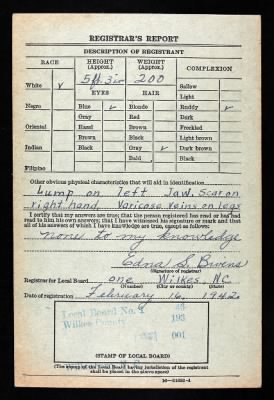 REGISTRAR'S REPORT
DESCRIPTION OF REGISTRANT
RACE HEIGHT (Approx.) WEIGHT (Approx.) COMPLEXION
5 ft. 3 in 200
White ✓ EYES HAIR Sallow
Light
Negro Blue ✓ Blonde Ruddy ✓
Gray Red Dark
Oriental Hazel Brown Freckled
Brown Black Light brown
Indian Black Gray ✓ Dark brown
Bald Black
Filipino
Other obvious physical characteristics that will aid in identification
Lump on left Jaw. Scar on
right hand, Varicose Veins on legs
I certify that my answers are true; that the person registered has read or has had
read to him his own answers; that I have witnessed his signature or mark and that
all of his answers of which I have knowledge are true, except as follows:
None to my knowledge
Edna S.
(Signature of registrar)
Registrar for Local Board one Wilkes, NC
(Number) (City or county) (State)
Date of registration February 16, 1942
Local Board No. 1 49
Wilkes County 193
001
(STAMP OF LOCAL BOARD)
(The stamp of the Local Board having jurisdiction of the registrant
shall be placed in the above space)